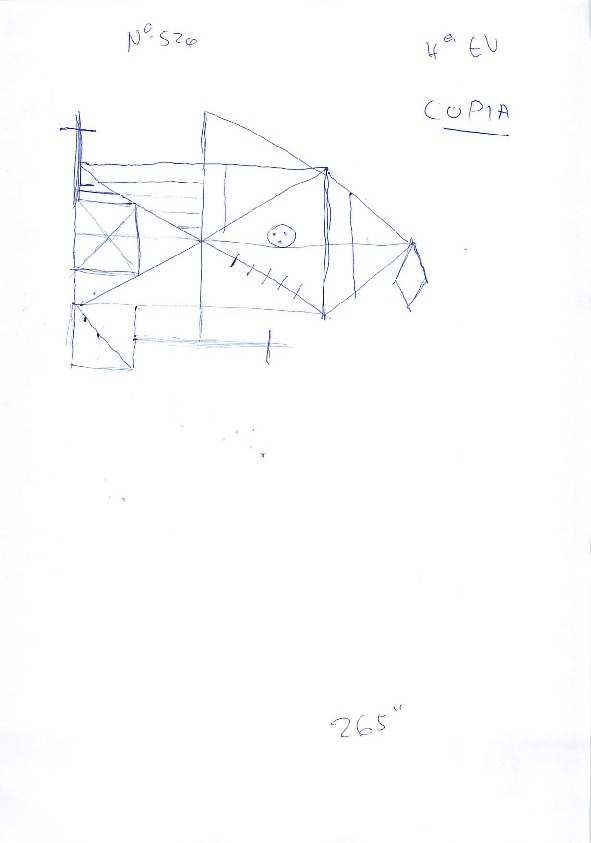 Nº-526
4ª EV
COPIA
265"